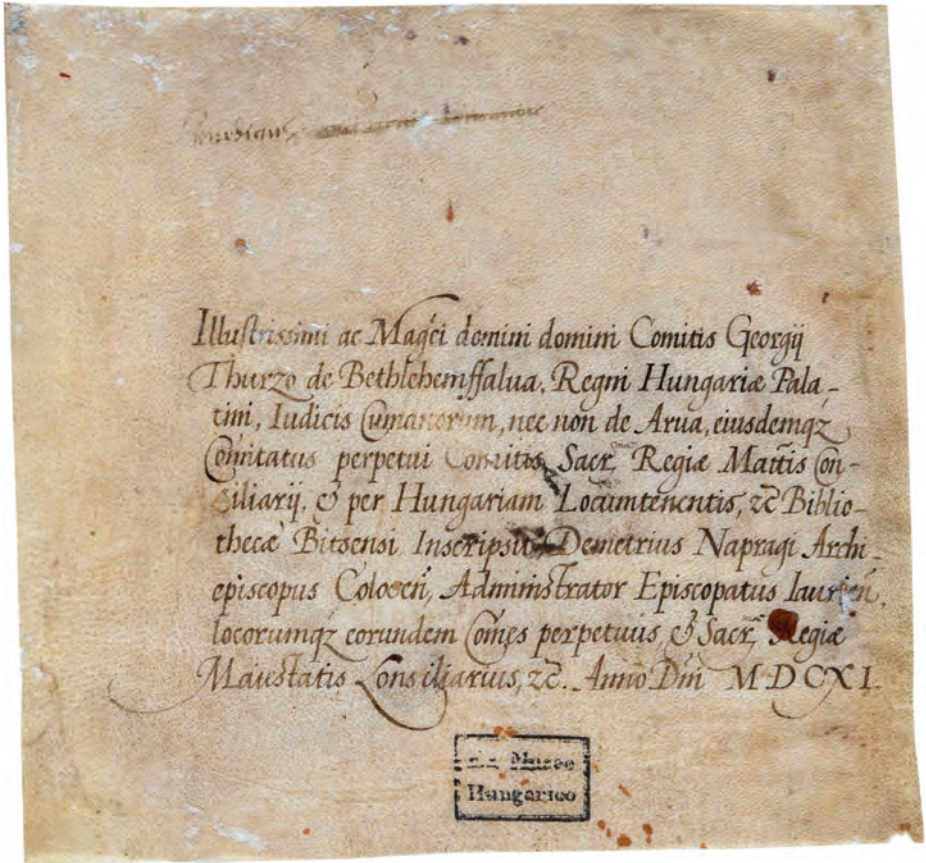 Illustrissimi ac Mag̃ci domini domini Comitis Georgij
Thurzo de Bethlehemffalua. Regni Hungariæ Pala-
tini, Iudicis Cumanorum, nec non de Arua, eiusdemqȝ
Comitatus perpetui Comitis, Sacr, Regiæ Mattis Con-
siliarij, & per Hungariam Locumtenentis, ⁊c̃ Biblio-
thecæ Bitsensi Inscripsit Demetrius Napragi Archi-
episcopus Colocen̄, Administrator Episcopatus Iaurien̄,
locorumqȝ eorundem Comes perpetuus, & Sacr, Regiæ
Maiestatis Consiliarius, ⁊c̃. Anno Dn̄i MDCXI.
Museo
Hungarico